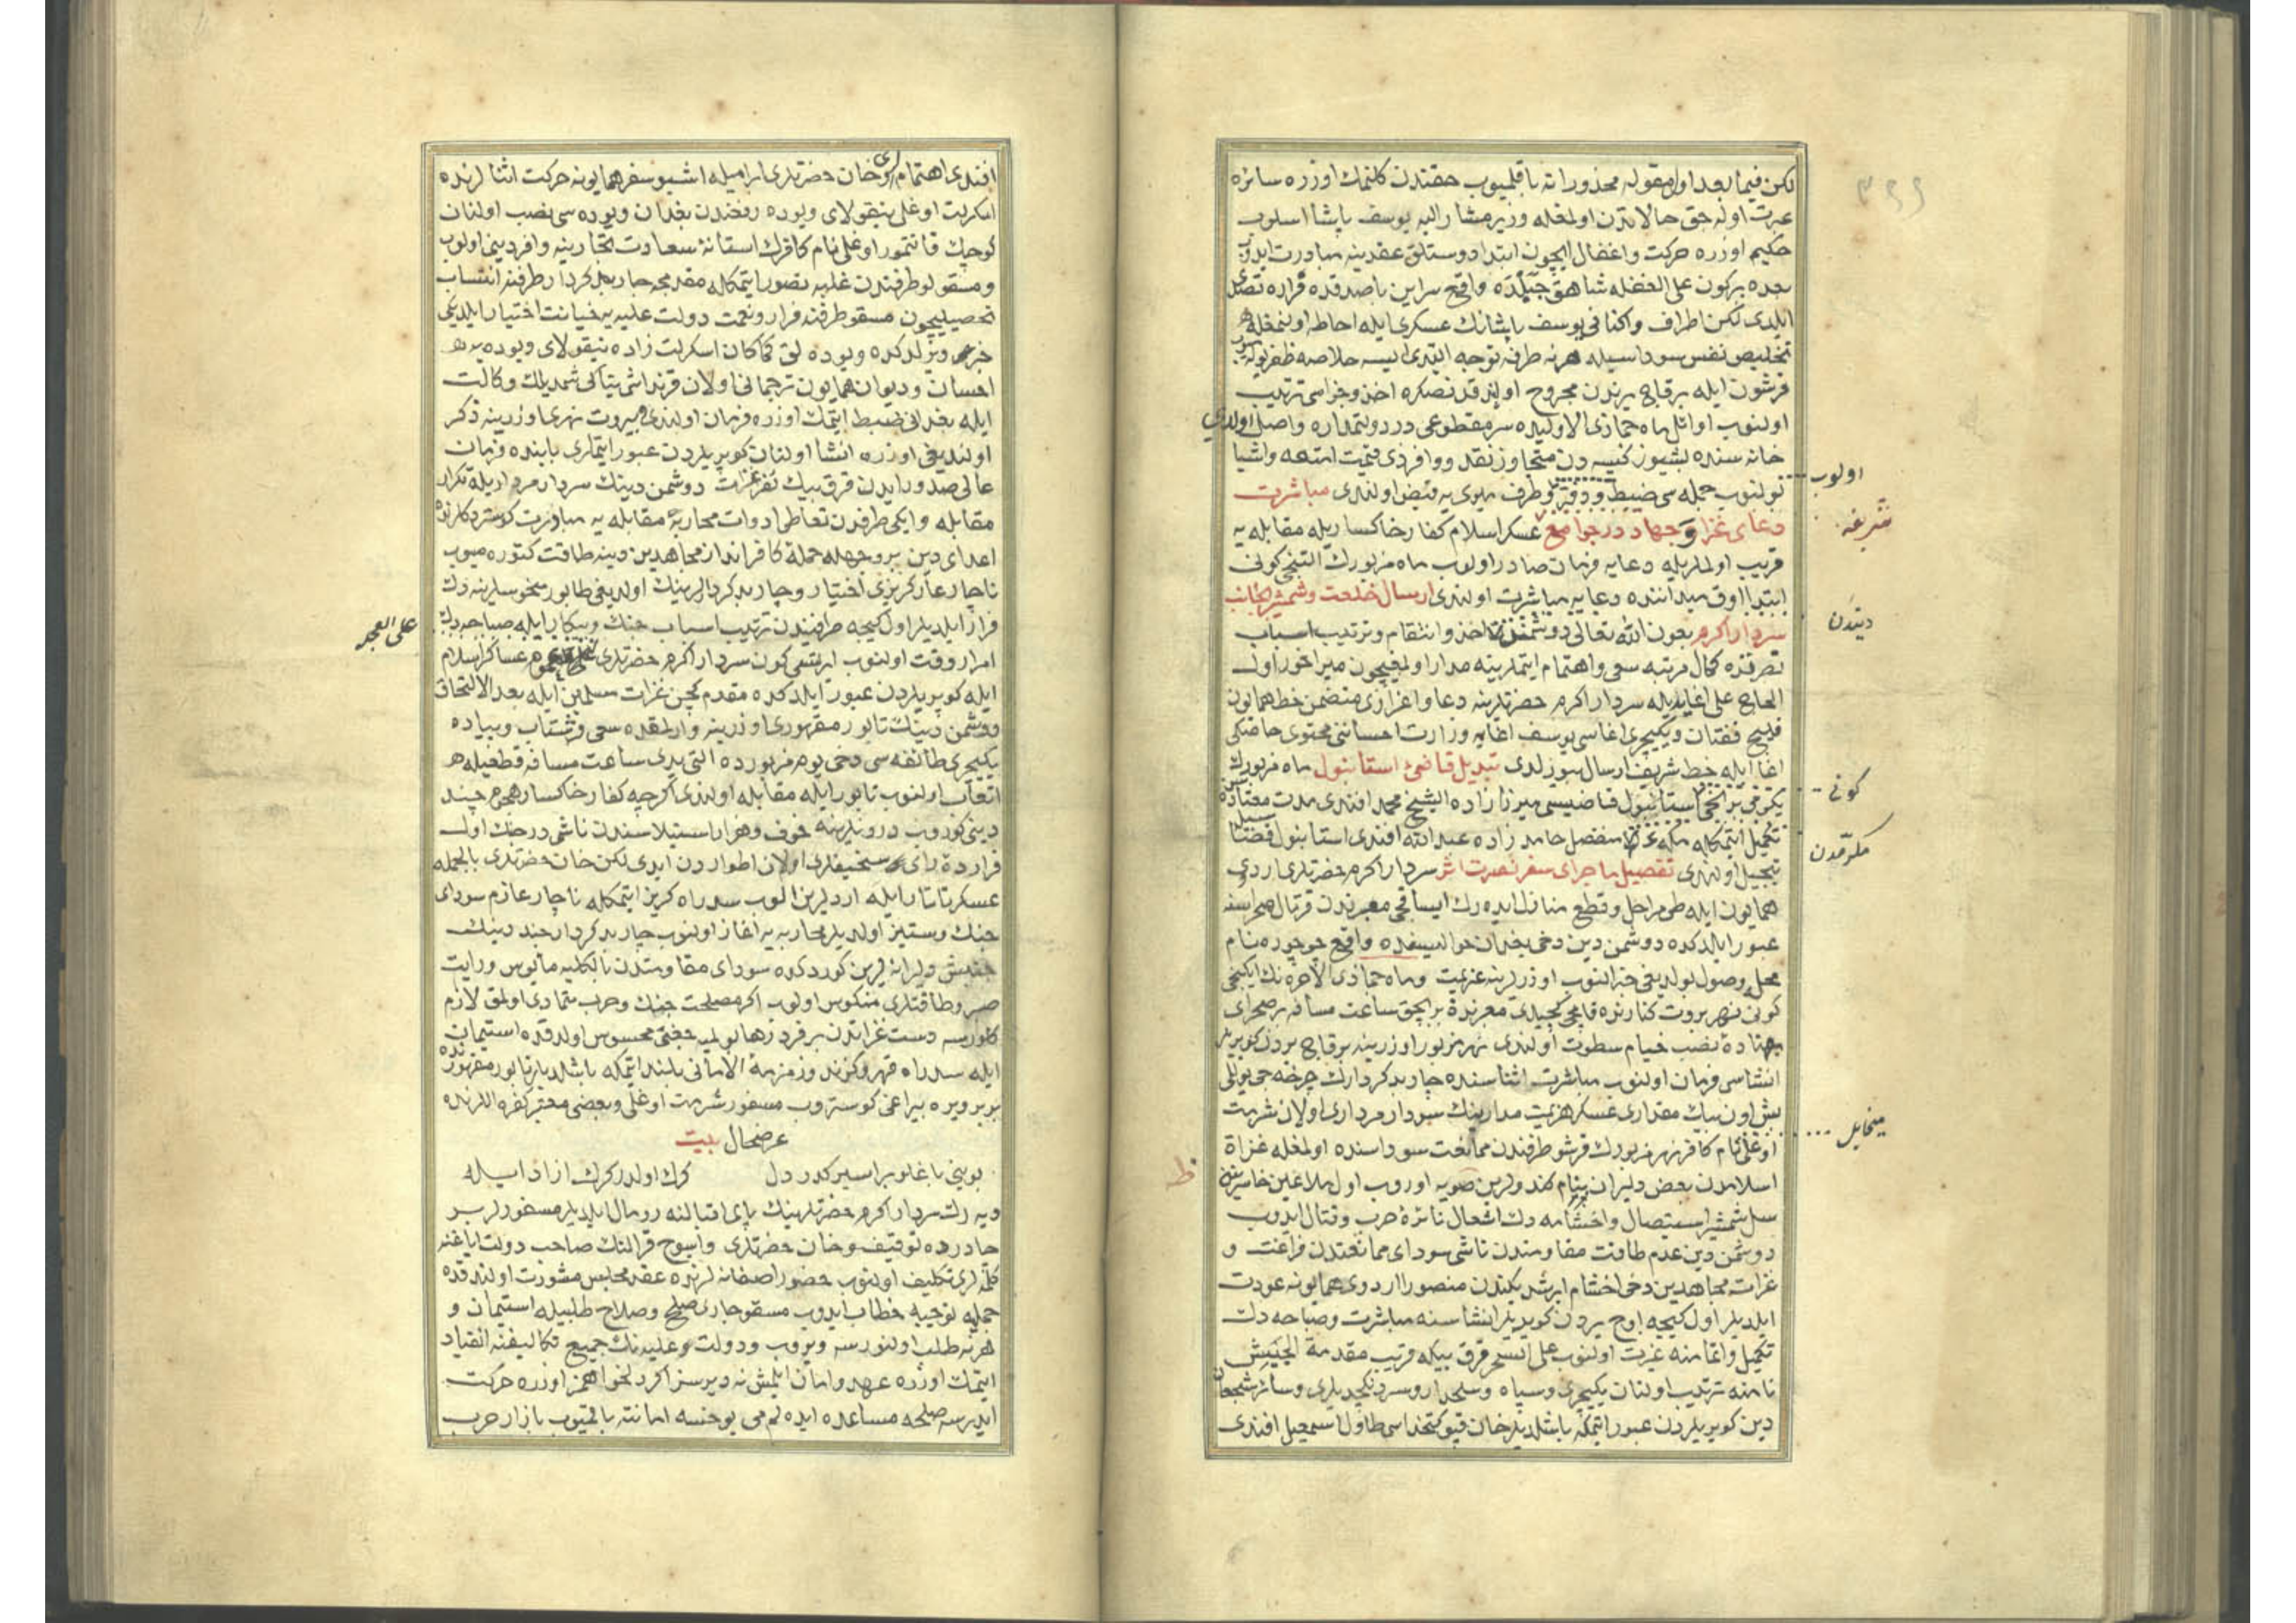 لكن فيما بعد اول مقوله محذوراته باقلميوب حقتدن كلنمك اوزره سائره
عبرت اوله جق حالاتدن اولمغله وزير مشار اليه يوسف پاشا اسلوب
حكيم اوزره حركت و اغفال ايچون ابتدا دوستلق عقدينه مبادرت ايدوب
بعده بركون على الغفله شاهق جبلده واقع سراين باصدقده قراره تصدى
ايلدى لكن اطراف و اكنافى يوسف پاشانك عسكرى ايله احاطه اولنمغله
تخليص نفس سوداسيله هر نه طرفه توجه ايتدى ايسه خلاصه ظفر بولميوب
قرشون ايله برقاج يرندن مجروح اولندقدنصكره اخذ و جزاسى ترتيب
اولنوب اوائل ماه جماذى الاوليده سر مقطوعى در دولتمداره واصل اولدى
خانه سنده بشيوز كيسه دن متجاوز نقد و وافر ذى قيمت امتعه و اشيا
بولنوب جمله سى ضبط و دفتر و طرف ميرى يه قبض اولندى مباشرت
اولوب
دعاى غزا و جهاد در جوامع عسكر اسلام كفار خاكسار يله مقابله يه
شريفه
قريب اولملريله دعايه فرمان صادر اولوب ماه مزبورك التنجى كونى
ابتدا اوق ميداننده دعايه مباشرت اولندى ارسال خلعت و شمشير بجانب
سردار اكرم بعون الله تعالى دوشمندن اخذ و انتقام و ترتيب اسباب
ديندن
نصرتده كمال مرتبه سعى و اهتمام ايتملرينه مدار اولمغيچون ميراخور اول
الحاج على اغا يديله سردار اكرم حضرتلرينه دعا و اعزازى متضمن خط همايون
قليج قفتان و يكيچرى اغاسى يوسف اغايه وزارت احساننى محتوى خاصكى
اغا ايله خط شريف ارسال بيورلدى تبديل قاضئ استانبول ماه مزبورك
يكرمى برنجى استانبول قاضيسى ميرزا زاده الشيخ محمد افندى مدت معتاده سن
كونى
تكميل ايتمكله مكه دن منفصل حامد زاده عبد الله افندى استانبول قضاسيله
مكرمه دن
تبجيل اولندى تفصيل ماجراى سفر نصرت اثر سردار اكرم حضرتلرى اردوى
همايون ايله طى مراحل و قطع منازل ايده رك ايساقجى معبرندن قرتال صحراسنه
عبور ايلدكده دوشمن دين دخى بغدان حواليسنده واقع جوجوره نام
محله وصول بولديغى خبر النوب اوزرلرينه عزيمت و ماه جماذى الاخره نك ايكنجى
كونى نهر بروت كنارنده قاپجى كچيدى معبرندن بربچق ساعت مسافه بر صحراى
پهناده نصب خيام سطوت اولندى نهر مزبور اوزرينه برقاج يردن كوپريلر
انشاسى فرمان اولنوب مباشرت اثناسنده چار بدكردارك چرخه جى يوللى
بش اون بيك مقدارى عسكر هزيمت مدارينك سردار مردارى اولان شرمت
ميخايل
اوغلى نام كافر نهر مزبورك قرشو طرفندن ممانعت سوداسنده اولمغله غزاة
اسلامدن بعض دليران بنام كندولرين صويه اوروب اول ملاعين خاسرينه
ط
سل شمشير استيصال و اخشامه دك اشعال نائرۀ حرب و قتال ايدوب
دوشمن دين عدم طاقت مقاومتدن ناشى سوداى ممانعتدن فراغت و
غزات مجاهدين دخى اخشام ايرشديكندن منصورا اردوى همايونه عودت
ايلديلر اول كيجه اوچ يردن كوپريلر انشاسنه مباشرت و صباحه دك
تكميل و اتمامنه غيرت اولنوب على السحر قرق بيكه قريب مقدمة الجيش
نامنه ترتيب اولنان يكيچرى و سپاه و سلحدار و سردنكچديلرى و سائر شجعان
دين كوپريلردن عبور ايتمكه باشلديلر خان قپو كتخداسى طاول اسمعيل افندى
افندى اهتمام و خان حضرتلرى ابراميله اشبو سفر همايونه حركت اثنالرنده
اسكرلت اوغلى نيقولاى ويوده رفعندن بغدان ويوده سى نصب اولنان
كوچك قانتمور اوغلى نام كافرك استانۀ سعادت تجارينه وافر دينى اولوب
و مسقولو طرفندن غلبه تصور ايتمكله مقدمجه چار بدكردار طرفنه انتساب
تحصيليچون مسقو طرفنه فرار و نعمت دولت عليه يه خيانت اختيار ايلديكى
خبرى ويرلدكده ويوده لق كماكان اسكرلت زاده نيقولاى ويوده يه
احسان و ديوان همايون ترجمانى اولان قرنداشى يناكى شمديلك وكالت
ايله بغدانى ضبط ايتمك اوزره فرمان اولندى بروت نهرى اوزرينه ذكر
اولنديغى اوزره انشا اولنان كوپريلردن عبور ايتملرى بابنده فرمان
عالى صدور ايدن قرق بيك نفر غزات دوشمن دينك سردار مرداريله تكرار
مقابله و ايكى طرفدن تعاطى ادوات محاربه و مقابله يه مبادرت كوستردكلرنده
اعداى دين بر وجهله حملۀ كافر انداز مجاهدين دينه طاقت كتوره ميوب
ناچار عار كريزى اختيار و چار بدكردارلرينك اولديغى طابور منحوسلرينه دك
فرار ايلديلر اول كيجه طرفيندن ترتيب اسباب جنك و پيكار ايله صباحه دك
امرار وقت اولنوب ايرتسى كون سردار اكرم حضرتلرى عموم عساكر اسلام
على العجله
ايله كوپريلردن عبور ايلدكده مقدم كچن غزات مسلمين ايله بعد الالتحاق
دوشمن دينك تابور مقهورى اوزرينه وارلمقده سعى و شتاب و پياده
يكيچرى طائفه سى دخى يوم مزبورده التى يدى ساعت مسافه قطعيله
اتعاب اولنوب تابور ايله مقابله اولندى اكرچه كفار خاكسار هجوم جند
دينى كوروب درونلرينه خوف و هراس استيلاسندن ناشى درجنك اول
فرار ده راى سخيفلرى اولان اطواردن ايدى لكن خان حضرتلرى بالجمله
عسكر تاتار ايله اردلرين الوب سد راه كريز ايتمكله ناچار عازم سوداى
جنك و ستيز اولديلر محاربه يه اغاز اولنوب چار بدكردار جند دينك
جنبش دليرانه لرين كوردكده سوداى مقاومتدن بالكليه مأيوس و رايت
صبر و طاقتلرى منكوس اولوب اكر مصلحت جنك و حرب متمادى اولمق لازم
كلورسه دست غزاتدن بر فرد رها بولميه جغى محسوس اولدقده استيمان
ايله سد راه قهر و كزند و زمزمۀ الامانى بلند ايتمكه باشلديلر تابور مقهورنده
بربر ويره بيراغى كوستروب مسفور شرمت اوغلى و بعضى معتبر كفره اللرنده
عرضحال بيت
بوينى باغلو بر اسير كدر دل      كرك اولدر كرك ازاد ايله
ديه رك سردار اكرم حضرتلرينك پاى اقبالنه رومال ايلديلر مسفورلر بر
چادرده توقيف و خان حضرتلرى و اسوج قرالنك صاحب دولت اياغنه
كلملرى تكليف اولنوب حضور اصفانه لرنده عقد مجلس مشورت اولندقده
جمله يه توجيه خطاب ايدوب مسقو چارى صلح و صلاح طلبيله استيمان و
هر نه طلب اولنورسه ويروب و دولت و عليه نك جميع تكاليفنه انقياد
ايتمك اوزره عهد و امان ايلمش نه ديرسز اكر دلخواهمز اوزره حركت
ايدرسه صلحه مساعده ايده لم مى يوخسه امانته باقميوب بازار حرب